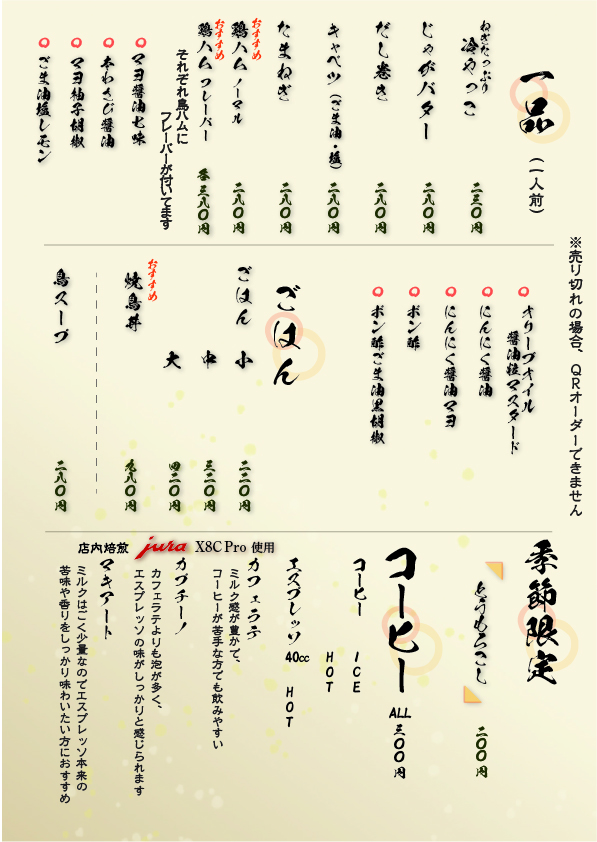 ※売り切れの場合、QRオーダーできません
一品（一人前）
ねぎたっぷり
冷やっこ 二三〇円
じゃがバター 二八〇円
だし巻き 二八〇円
キャベツ（ごま油・塩） 二八〇円
たまねぎ 二八〇円
おすすめ
鶏ハム ノーマル 二八〇円
おすすめ
鶏ハム フレーバー 各三八〇円
それぞれ鳥ハムに
フレーバーが付いてます
○ マヨ醤油七味
○ 本わさび醤油
○ マヨ柚子胡椒
○ ごま油塩レモン
○ オリーブオイル
醤油粒マスタード
○ にんにく醤油
○ にんにく醤油マヨ
○ ポン酢
○ ポン酢ごま油黒胡椒
ごはん
ごはん 小 二二〇円
中 三二〇円
大 四二〇円
おすすめ
焼鳥丼 九八〇円
鳥スープ 二八〇円
季節限定
とうもろこし 二〇〇円
コーヒー ALL 三〇〇円
コーヒー ICE
HOT
エスプレッソ 40cc HOT
カフェラテ
ミルク感が豊かで、
コーヒーが苦手な方でも飲みやすい
カプチーノ
カフェラテよりも泡が多く、
エスプレッソの味がしっかりと感じられます
マキアート
ミルクはごく少量なのでエスプレッソ本来の
苦味や香りをしっかり味わいたい方におすすめ
店内焙煎 jura X8C Pro 使用